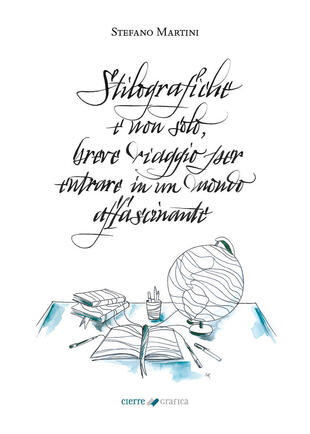 Stefano Martini
Stilografiche
e non solo,
breve viaggio per
entrare in un mondo
affascinante
cierre grafica